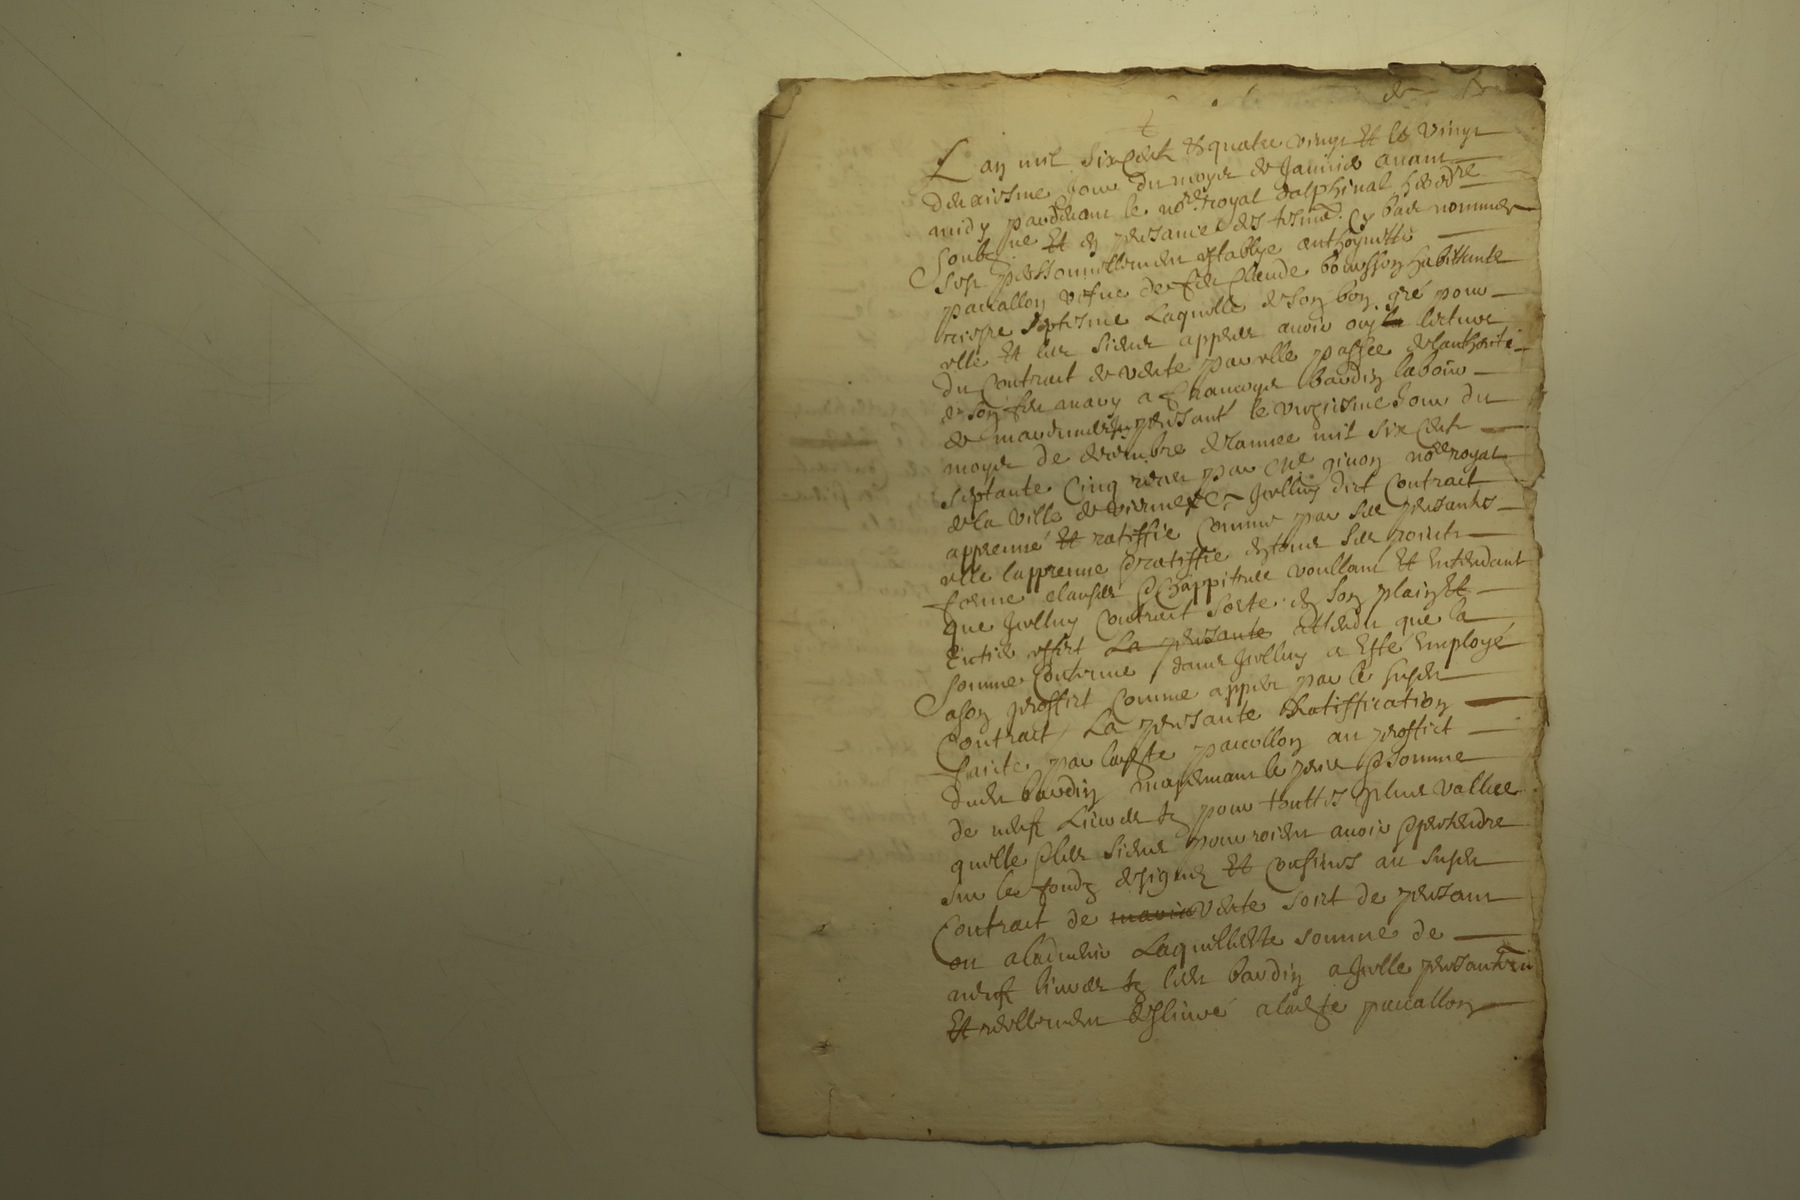 de
Lan mil six cent & quatre vingt Et le vingt
deuxiesme jour du moys de Janvier avant
midy pardevant le no.re royal dalphinal heredre
soubzne Et en presance des tesmn cy bas nommes
sest personnellement establye anthoynette
paccallon vefve de feu Claude bousson habittante
Laquelle de son bon gré pour
elle Et les siens appres avoir ouy la lecture
du Contract de vente par elle passée de lauthorité
de son feu mary a francoys bardin labour
de present le vingtiesme jour du
moys de decembre de lannee mil six cent
septante Cinq receu par me ginon no.re royal
de la ville de vienne Icelluy dict Contract
appreuué Et ratiffié Comme par ses presantes
elle lappreuue & ratiffie en tous ses points
forme clauses & chappitres voullant Et entendant
que Icelluy Contract sorte en son plain Et
entier effect La presante attendu que la
somme Contenue dans Icelluy a Esté employé
a son proffict Comme appert par le susdt
Contract La presante Ratiffication
faicte par ladte paccollon au proffict
dudt bardin moyennant le prix & somme
de neuf Livres tz pour touttes plus vallue
quelle & les siens pourroient avoir & pretendre
sur les fondz designes Et Confines au susdt
Contract de vente soict de presant
ou aladvenir Laquelle somme de
neufz livres tz ledt bardin a Icelle presantemt
Et reellement deslivré a ladte paccallon